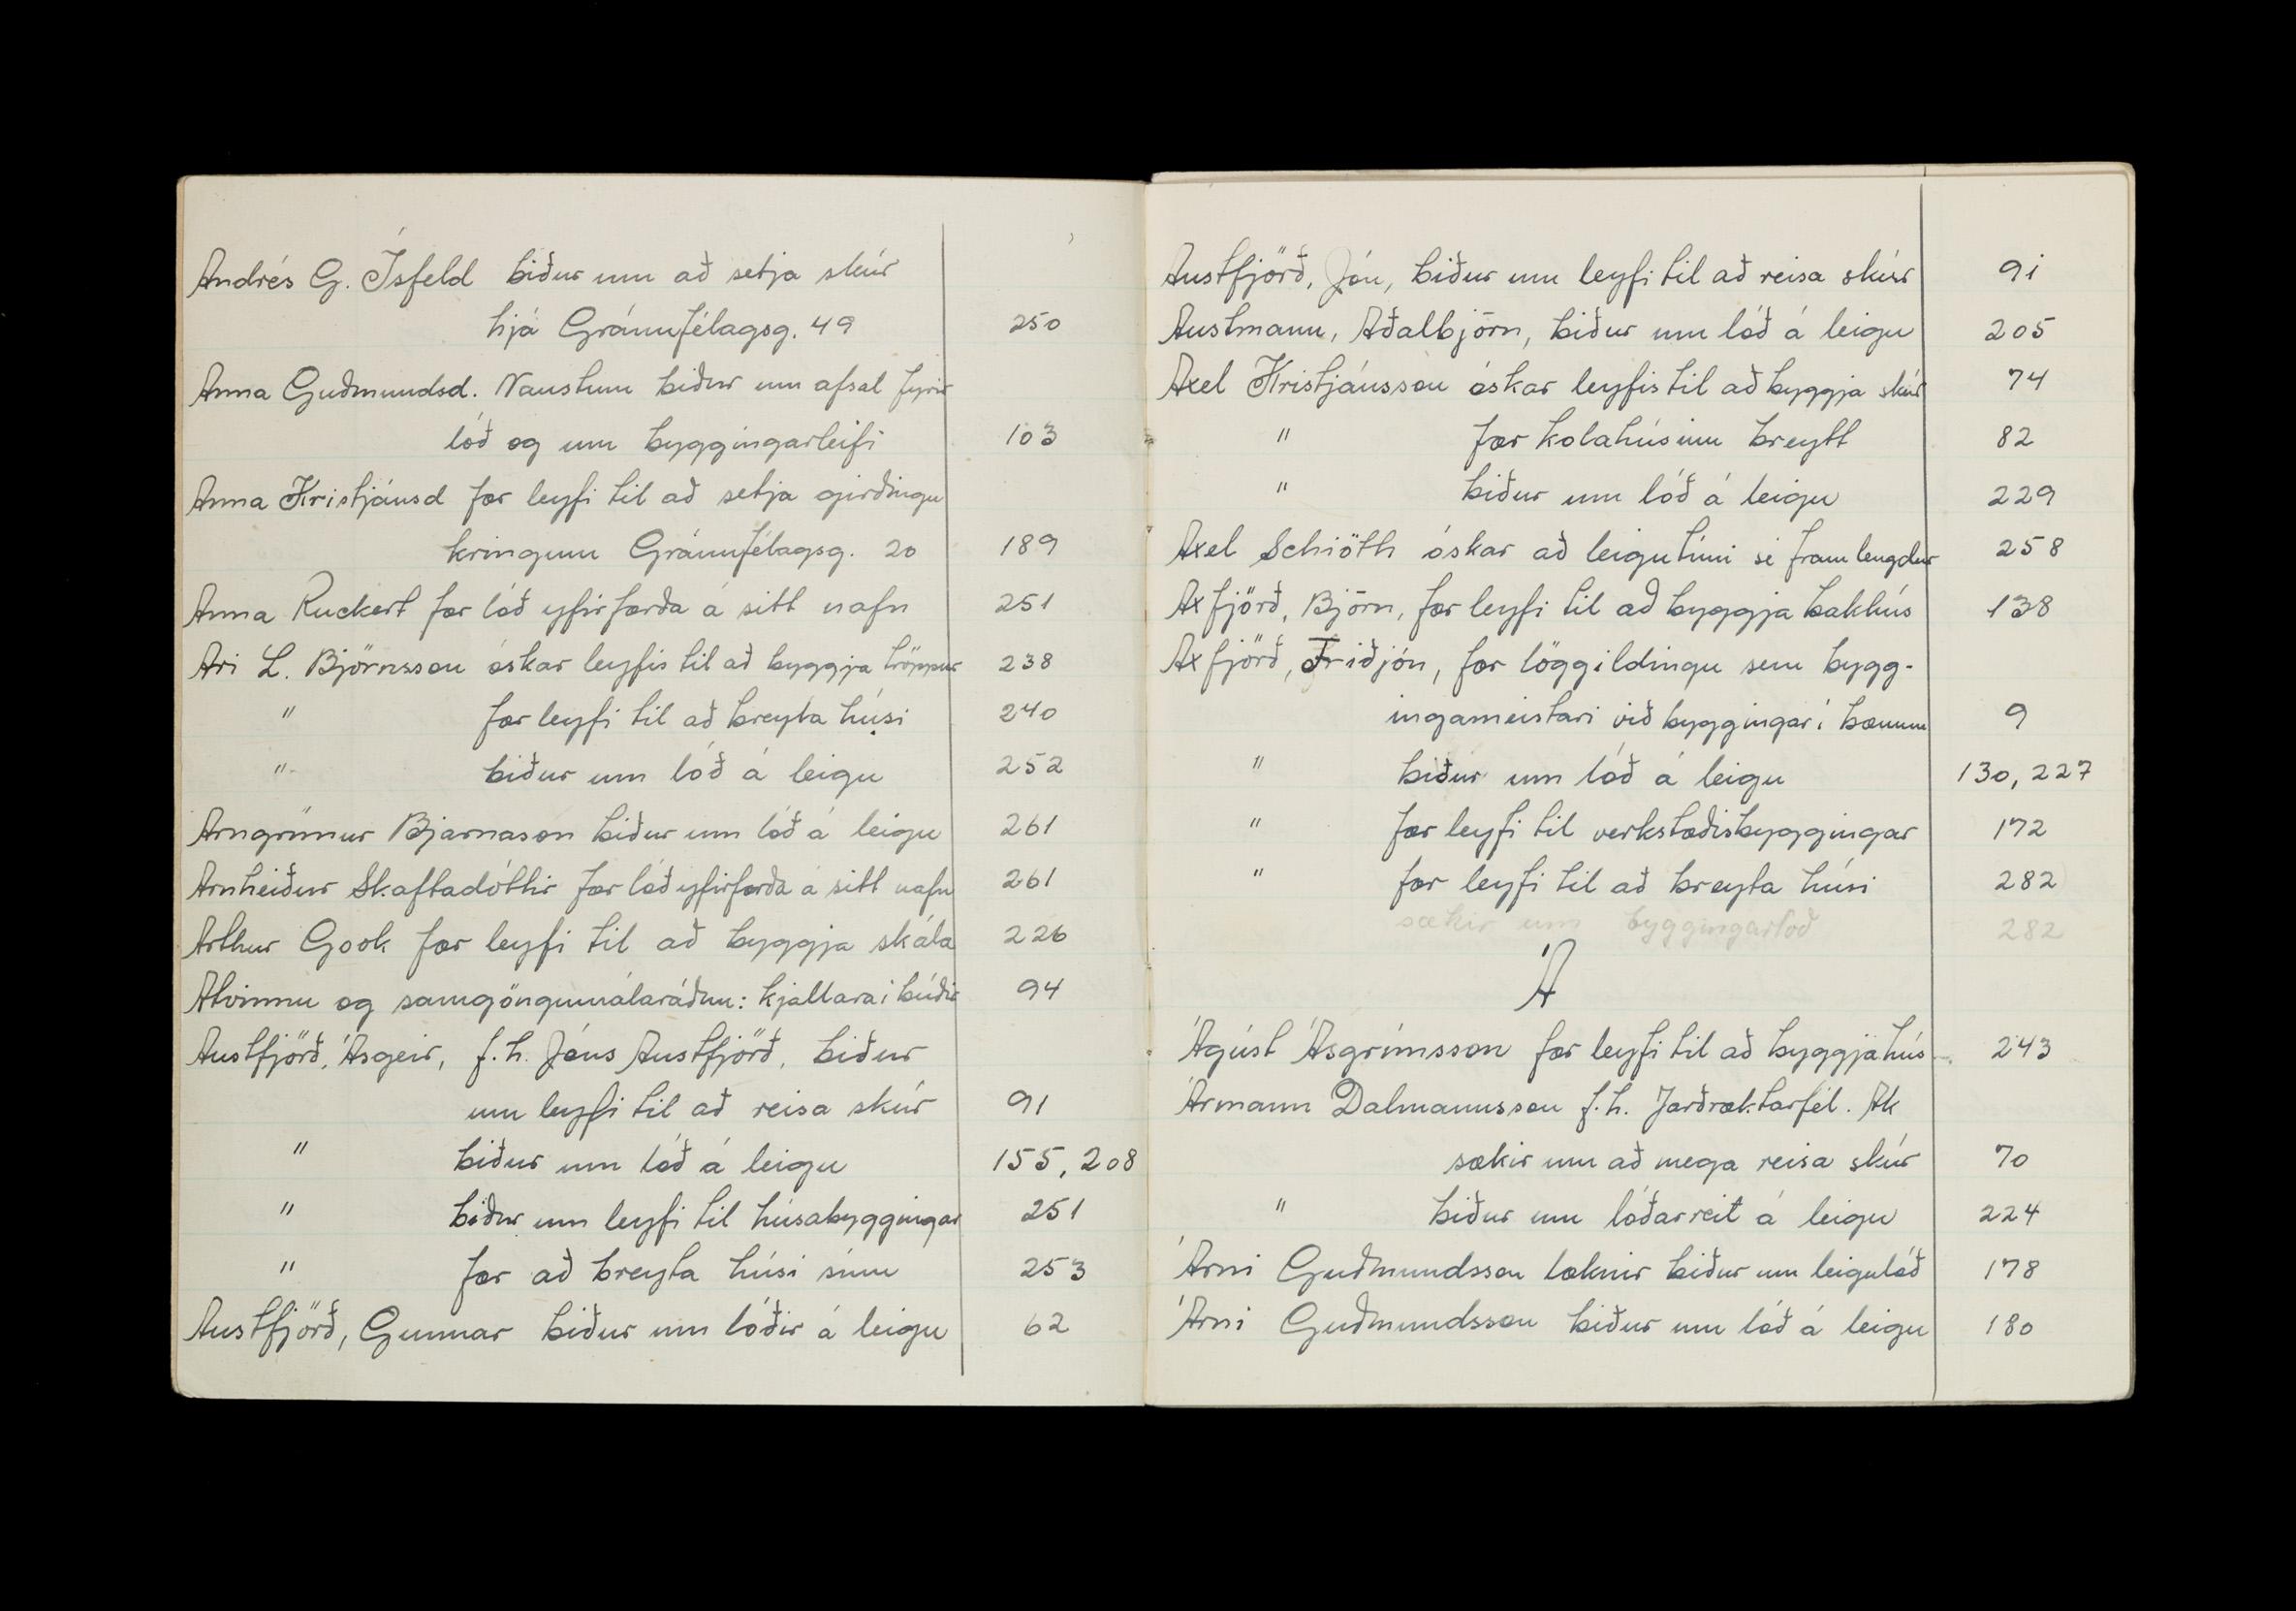 Andrés G. Ísfeld biður um að setja skúr
hjá Gránufélagsg. 49 250
Anna Guðmundsd. Naustum biður um afsal fyrir
lóð og um byggingarleifi 103
Anna Kristjánsd fær leyfi til að setja girðingu
kringum Gránufélagsg. 20 189
Anna Ruckert fær lóð yfirfærða á sitt nafn 251
Ari L. Björnsson óskar leyfis til að byggja tröppur 238
" fær leyfi til að breyta húsi 240
" biður um lóð á leigu 252
Arngrímur Bjarnason biður um lóð á leigu 261
Arnheiður Skaftadóttir fær lóð yfirfærða á sitt nafn 261
Arthur Gook fær leyfi til að byggja skála 226
Atvinnu og samgöngumálaráðun: kjallara í búðir 94
Austfjörð, Ásgeir, f.h. Jóns Austfjörð, biður
um leyfi til að reisa skúr 91
" biður um lóð á leigu 155, 208
" biður um leyfi til húsabyggingar 251
" fær að breyta húsi sínu 253
Austfjörð, Gunnar biður um lóðir á leigu 62
Austfjörð, Jón, biður um leyfi til að reisa skúr 91
Austmann, Aðalbjörn, biður um lóð á leigu 205
Axel Kristjánsson óskar leyfis til að byggja skúr 74
" fær kolahúsinu breytt 82
" biður um lóð á leigu 229
Axel Schiöth óskar að leigutími sé framlengdur 258
Axfjörð, Björn, fær leyfi til að byggja bakhús 138
Axfjörð, Friðjón, fær löggildingu sem bygg-
ingameistari við byggingar í bænum 9
" biður um lóð á leigu 130, 227
" fær leyfi til verkstæðisbyggingar 172
" fær leyfi til að breyta húsi 282
sækir um byggingarlóð 282
Á
Ágúst Ásgrímsson fær leyfi til að byggja hús 243
Ármann Dalmannsson f.h. Jarðræktarfél. Ak
sækir um að mega reisa skúr 70
" biður um lóðarreit á leigu 224
Árni Guðmundsson læknir biður um leigulóð 178
Árni Guðmundsson biður um lóð á leigu 180